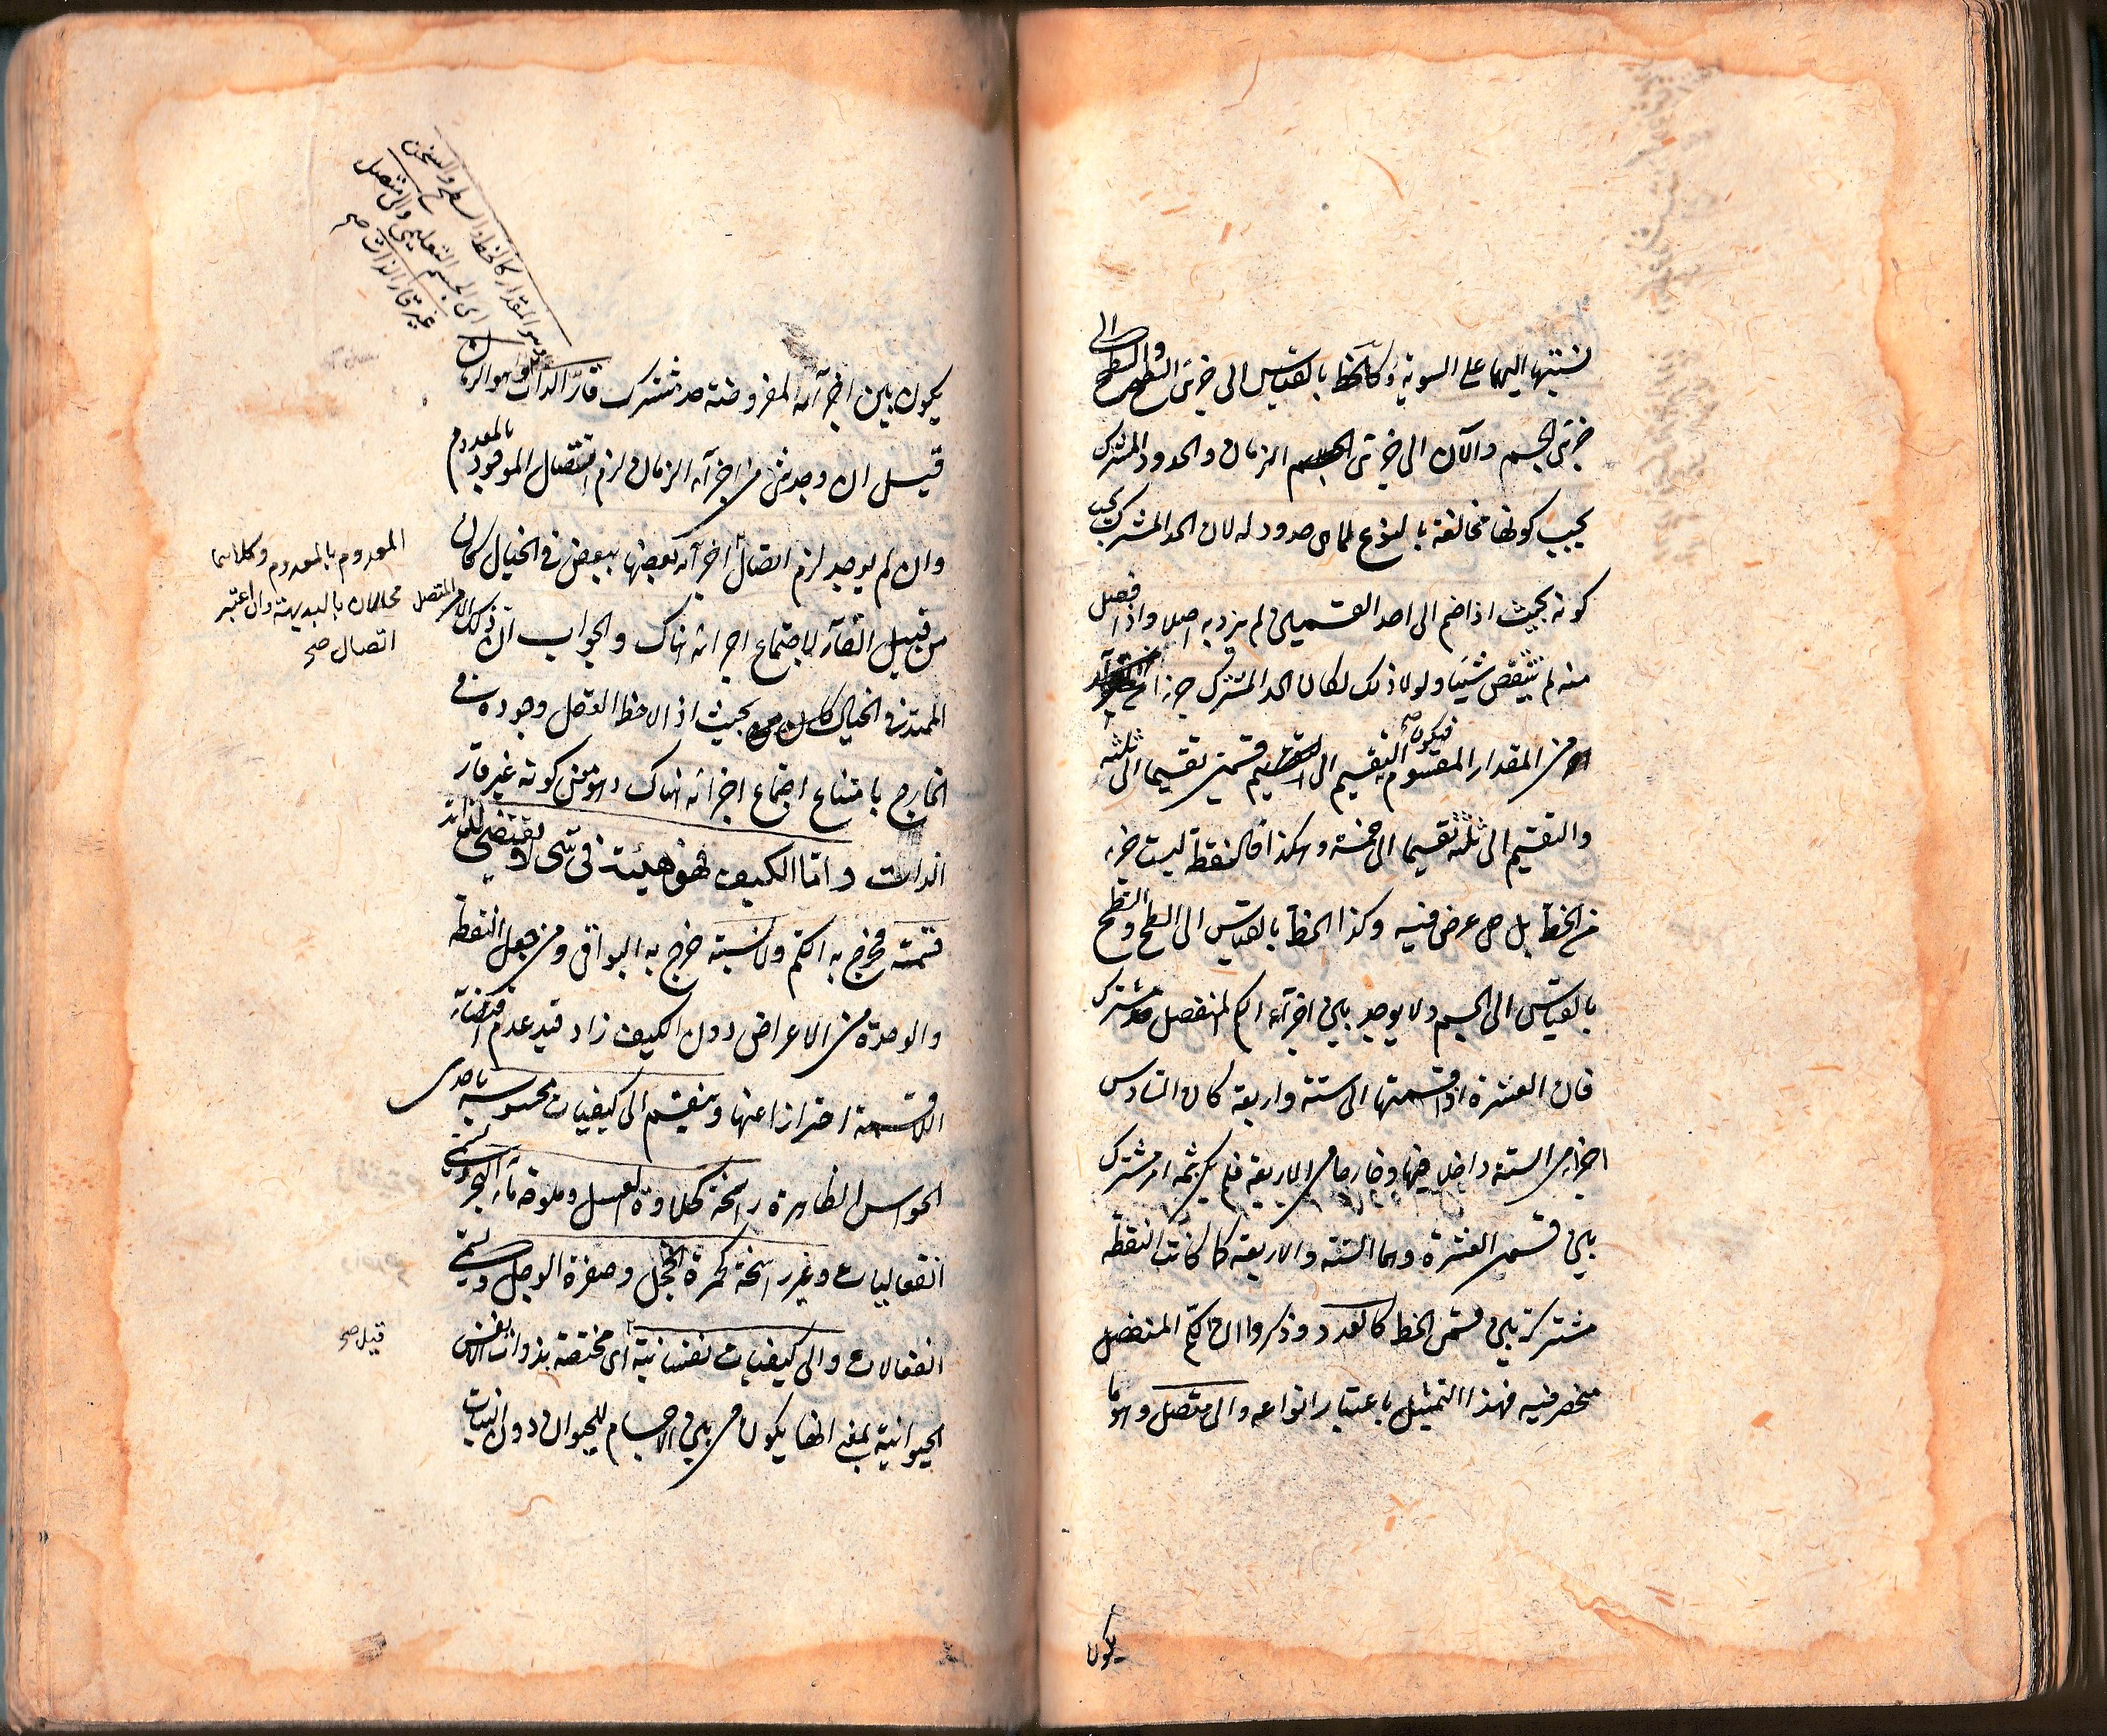 نسبتها اليهما على السوية وكالخط بالقياس الى جزئى السطح والسطح الى
جزئى الجسم والآن الى جزئى الزمان والحدود المشتركة
يجب كونها مخالفة بالنوع لما هى حدود له لان الحد المشترك يجب
كونه بحيث اذا ضم الى احد القسمين لم يزد به اصلا واذا فصل
منه لم ينتقص شيئا ولولا ذلك لكان الحد المشترك جزءا آخر
من المقدار المقسوم فيكون التقسيم الى قسمين تقسيما الى ثلثة
والتقسيم الى ثلثة تقسيما الى خمسة وهكذا فالنقطة ليست جزء
من الخط بل هى عرض فيه وكذا الخط بالقياس الى السطح والسطح
بالقياس الى الجسم ولا يوجد بين اجزآء الكم المنفصل حد مشترك
فان العشرة اذا قسمتها الى ستة واربعة كان السادس
جزء من الستة داخلا فيها وخارجا من الاربعة فلم يكن ثمه امر مشترك
بين قسمى العشرة وهما الستة والاربعة كما كانت النقطة
مشتركة بين قسمى الخط كالعدد وذكروا ان الكم المنفصل
منحصر فيه فهذا التمثيل باعتبار انواعه والى متصل وهو ما
يكون
يكون بين اجزآئه المفروضة حد مشترك قار الذات
وهو المقدار كالخط والسطح والثخن
اى الجسم التعليمى والى متصل
غير قار الذات صح
وهو الزمان
قيل ان وجد شىء من اجزآء الزمان لزم اتصال الموجود بالمعدوم
وان لم يوجد لزم اتصال اجزآئه بعضها ببعض فى الخيال كان
المعدوم بالمعدوم وكلاهما
محالان بالبديهة وان اعتبر
اتصال صح
من قبيل القآر لاجتماع اجزائه هناك والجواب ان ذلك الامر المتصل
الممتد فى الخيال بحيث اذا لاحظ العقل وجوده فى
الخارج بامتناع اجتماع اجزائه هناك وهو معنى كونه غير قار
الذات واما الكيف فهو هيئة فى شى لا يقتضى لذاته
قسمة فخرج به الكم ولا نسبة خرج به البواقى ومن جعل النقطة
والوحدة من الاعراض دون الكيف زاد قيد عدم اقتضآء
اللاقسمة احترازا عنها وينقسم الى كيفيات محسوسة باحدى
الحواس الظاهرة راسخة كحلاوة العسل وملوحة مآء البحر وتسمى
انفعاليات وغير راسخة كحمرة الخجل وصفرة الوجل وتسمى
انفعالات والى كيفيات نفسانية اى مختصة بذوات الانفس
قيل صح
الحيوانية بمعنى انها يكون من بين الاجسام للحيوان دون النبات